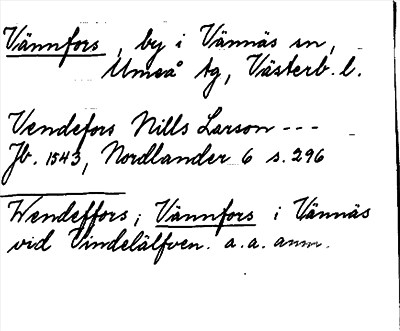 Vännfors, by i Vännäs sn,
Umeå tg, Västerb. l.
Vendefors Nills Larson - - -
Jb. 1543, Nordlander 6 s. 296
Wendeffors; Vännfors i Vännäs
vid Vindelälfven. a. a. anm.